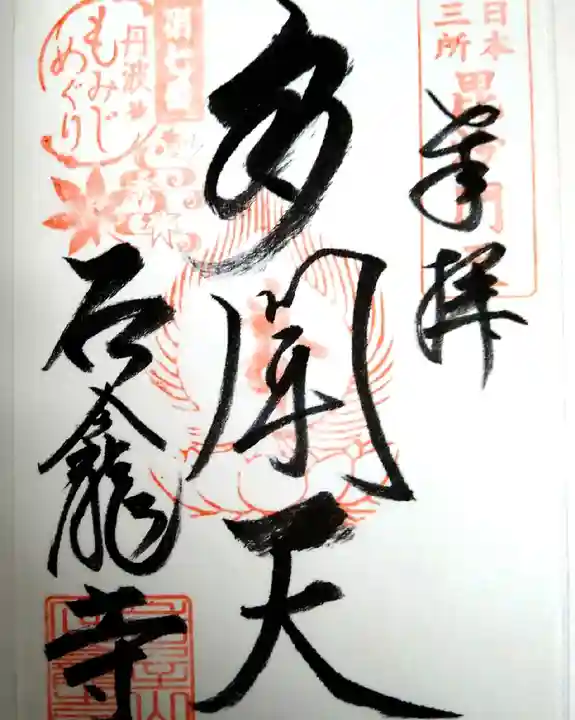 日本
三所
毘沙門天
奉拝
多聞天
丹波
もみじ
めぐり
石龕寺